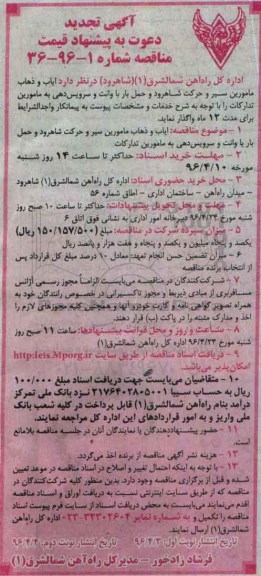 آگهی تجدید
دعوت به پیشنهاد قیمت
مناقصه شماره ۱-۹۶-۳۶
اداره کل راه‌آهن شمالشرق(۱)(شاهرود) درنظر دارد ایاب و ذهاب
مامورین مسیر و حرکت شاهرود و حمل بار با وانت و سرویس‌دهی به مامورین
تدارکات را با توجه به شرح خدمات و مشخصات پیوست به پیمانکار واجدالشرایط
برای مدت ۱۲ ماه واگذار نماید.
۱ - موضوع مناقصه: ایاب و ذهاب مامورین سیر و حرکت شاهرود و حمل
بار با وانت و سرویس‌دهی به مامورین تدارکات
۲ - مهلت خرید اسناد: حداکثر تا ساعت ۱۴ روز شنبه
مورخه ۹۶/۴/۱۰
۳ - محل خرید حضوری اسناد: اداره کل راه‌آهن شمالشرق(۱) شاهرود
- میدان راه‌آهن - ساختمان اداری - اطاق شماره ۵۶
۴ - مهلت و محل تحویل پیشنهادات: حداکثر تا ساعت ۱۰ صبح روز
شنبه مورخ ۹۶/۴/۲۴ دبیرخانه امور اداری به نشانی فوق اتاق ۶
۵ - میزان سپرده شرکت در مناقصه: مبلغ (۱۵۰/۱۵۷/۵۰۰ ریال)
یکصد و پنجاه میلیون و یکصد و پنجاه و هفت هزار و پانصد ریال
۶ - میزان تضمین حسن انجام تعهد: معادل ۱۰ درصد مبلغ کل قرارداد پس
از انتخاب برنده مناقصه
۷ - شرکت‌کنندگان در مناقصه می‌بایست الزاماً مجوز رسمی آژانس
مسافربری از مبادی ذیربط و مجوز تاکسیرانی در خصوص رانندگان خود به
همراه تصویر گواهی نامه و کارت خودرو آنها و همچنین کلیه مجوزهای لازم را
اخذ و مدارک مثبته را در پاکت (ب) قرار دهند.
۸ - ساعت و روز و محل قرائت پیشنهادها: ساعت ۱۱ صبح روز
شنبه مورخ ۹۶/۴/۲۴ اداره کل راه‌آهن شمالشرق(۱)
۹ - دریافت اسناد مناقصه از طریق سایت http:iets.Mporg.ir
امکان پذیر می‌باشد.
۱۰ - متقاضیان می‌بایست جهت دریافت اسناد مبلغ ۱۰۰/۰۰۰
ریال به حساب سیبا ۲۱۷۶۴۰۲۸۰۵۰۰۱ نزد بانک ملی تمرکز
درآمد بنام راه‌آهن شمالشرق(۱) قابل پرداخت در کلیه شعب بانک
ملی واریز و به امور قراردادهای این اداره کل مراجعه نمایند.
۱۱ - حضور پیشنهاددهندگان یا نمایندگان آنان در جلسه مناقصه بلامانع
است.
۱۲ - هزینه نشر آگهی مناقصه از برنده اخذ می‌گردد.
۱۳ - با توجه به اینکه احتمال تغییر و اصلاح در اسناد مناقصه در موعد تعیین
شده و قبل از برگزاری مناقصه وجود دارد، بدین منظور کلیه شرکت‌کنندگان در
مناقصه که از طریق سایت اینترنتی نسبت به دریافت اوراق و اسناد مناقصه
اقدم می‌نمایند می‌بایست به محض دریافت اسناد از سایت فرم پیوست اسناد
مناقصه را تکمیل و به شماره نمابر ۳۲۳۰۲۶۰۴-۰۲۳ اداره کل راه‌آهن
شمالشرق(۱) ارسال نمایند.
تاریخ انتشار نوبت اول: ۹۶/۴/۳ تاریخ انتشار نوبت دوم: ۹۶/۴/۴
فرشاد رادخور - مدیرکل راه‌آهن شمالشرق(۱)